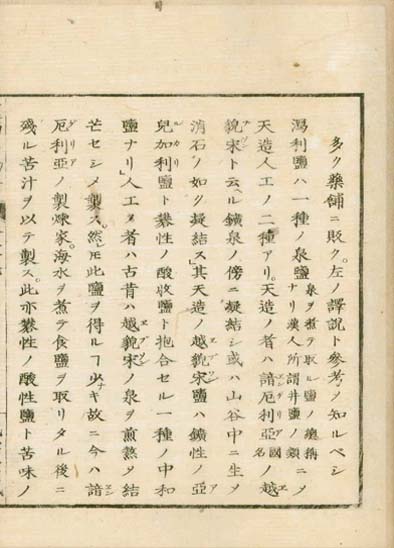 多ク藥鋪ニ販ク。左ノ譯説ト參考ノ知ルベシ
瀉利鹽ハ一種ノ泉鹽泉ヲ煮テ取ル鹽ノ總稱ナリ漢人所謂井鹽ノ類ニ〆
天造人工ノ二種アリ。天造ノ者ハ諳厄利亞國名ノ越エ
貌宋ブソント云ヘル鑛泉ノ傍ニ凝結シ或ハ山谷中ニ生〆
消石ノ如ク凝結ス」其天造ノ越貌宋エブソン鹽ハ鑛性ノ亞ア
兒加利ルカリ鹽ト礬性ノ酸收鹽ト抱合セル一種ノ中和
鹽ナリ」人工ノ者ハ古昔ハ越貌宋エブソンノ泉ヲ煎熬〆結
芒セシメ製ス。然𪜈此鹽ヲ得ルヿ少ナキ故ニ今ハ諳エン
厄利亞ゲリアノ製煉家。海水ヲ煮テ食鹽ヲ取リタル後ニ
殘ル苦汁ヲ以テ製ス。此亦礬性ノ酸性鹽ト苦味ノ